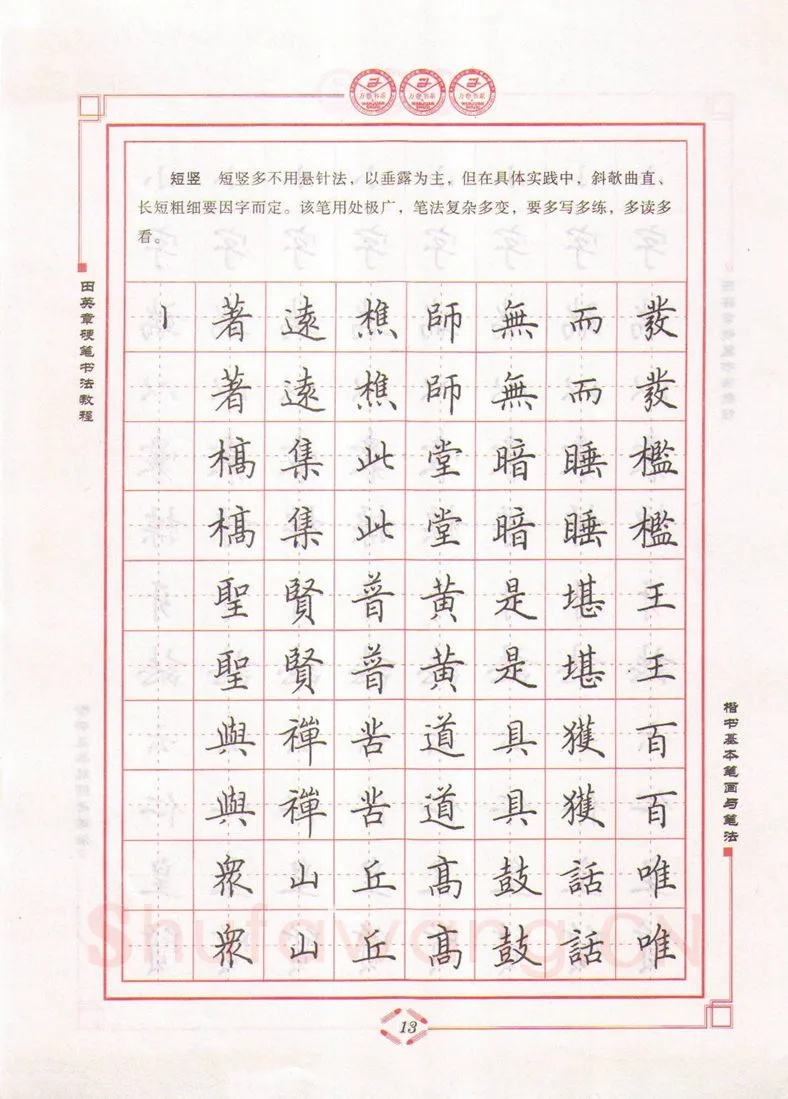 短竖 短竖多不用悬针法，以垂露为主，但在具体实践中，斜欹曲直、
长短粗细要因字而定。该笔用处极广，笔法复杂多变，要多写多练，多读多
看。
田英章硬笔书法教程
著遠樵師無而發
著遠樵師無而發
槁集此堂暗睡檻
槁集此堂暗睡檻
聖賢普黄是堪王
聖賢普黄是堪王
與禪苦道具獲百
與禪苦道具獲百
衆山丘高鼓話唯
衆山丘高鼓話唯
楷书基本笔画与笔法
Shufawang.CN
13